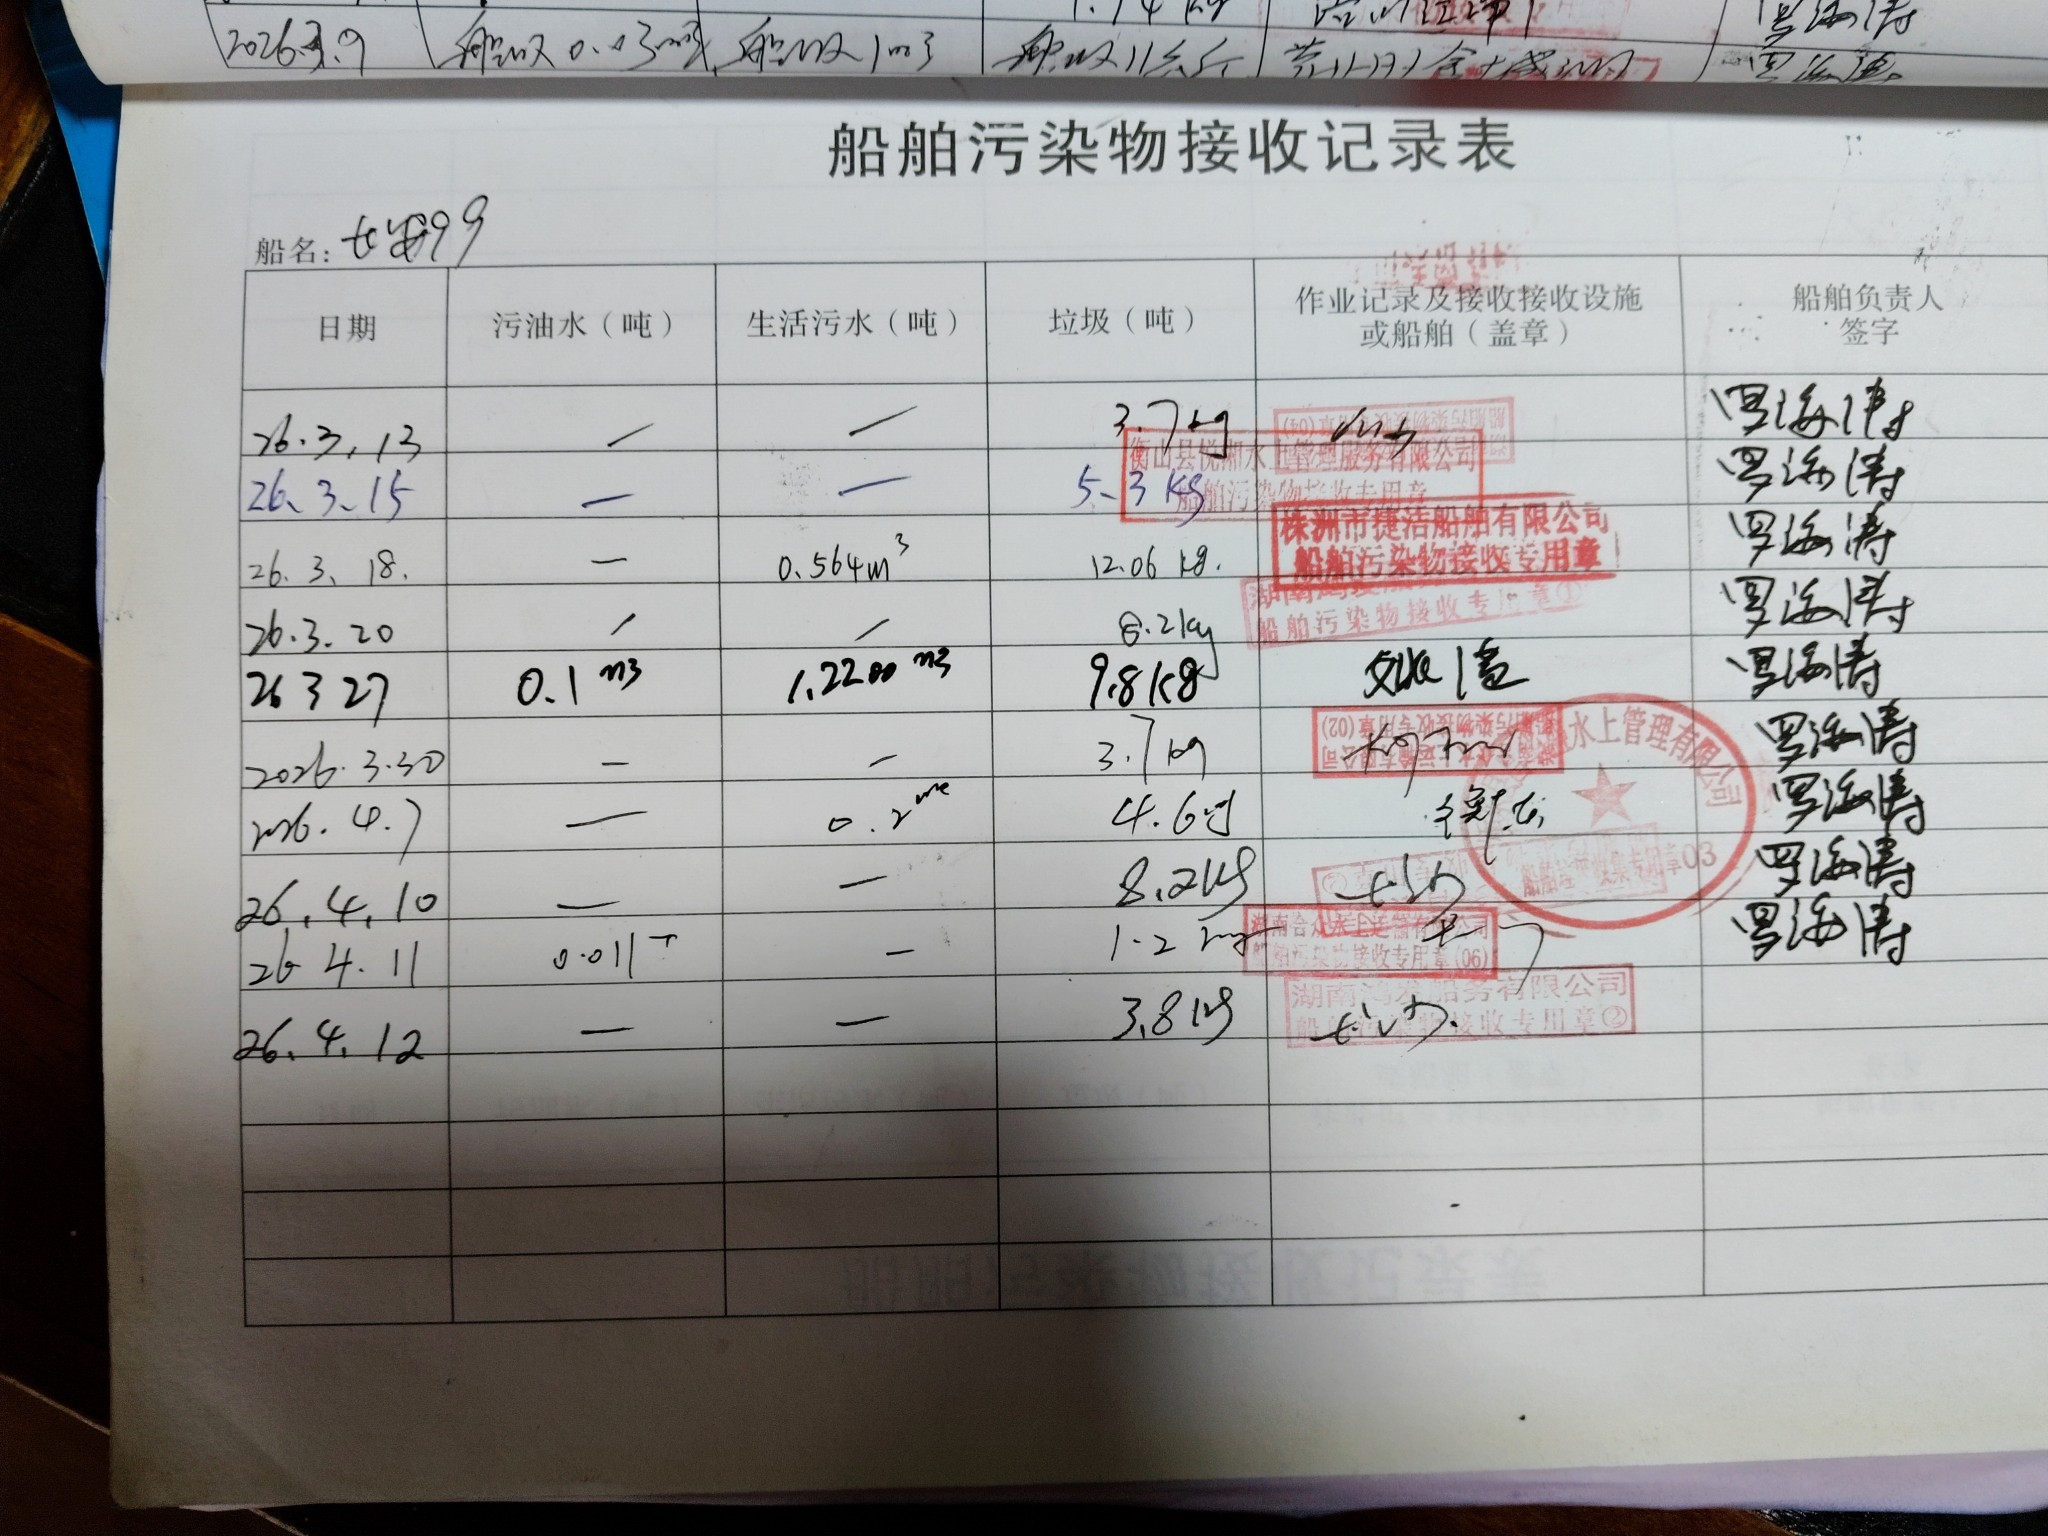 2026.3.9 船收0.03m3 船收1m3 船收11公斤
船舶污染物接收记录表
船名:
日期 污油水（吨） 生活污水（吨） 垃圾（吨） 作业记录及接收接收设施或船舶（盖章） 船舶负责人签字
26.3.13 — — 3.7kg 罗海涛
衡山县悦湘水上管理服务有限公司
船舶污染物接收专用章
26.3.15 — — 5.3kg 罗海涛
株洲市捷洁船舶有限公司
船舶污染物接收专用章
26.3.18. — 0.564m³ 12.06kg. 罗海涛
船舶污染物接收专用章①
26.3.20 / / 6.2kg 罗海涛
26 3 27 0.1m3 1.2200m3 9.8KG 罗海涛
船舶污染物接收专用章(02)
水上管理有限公司
03
2026.3.30 — — 3.7kg 罗海涛
2026.4.7 — 0.2 4.6 罗海涛
26.4.10 — — 8.2KG 罗海涛
湖南合众水上运输有限公司
船舶污染物接收专用章(06)
26 4.11 0.011T — 1.2 罗海涛
湖南鸿发船务有限公司
船舶污染物接收专用章②
26.4.12 — — 3.8KG